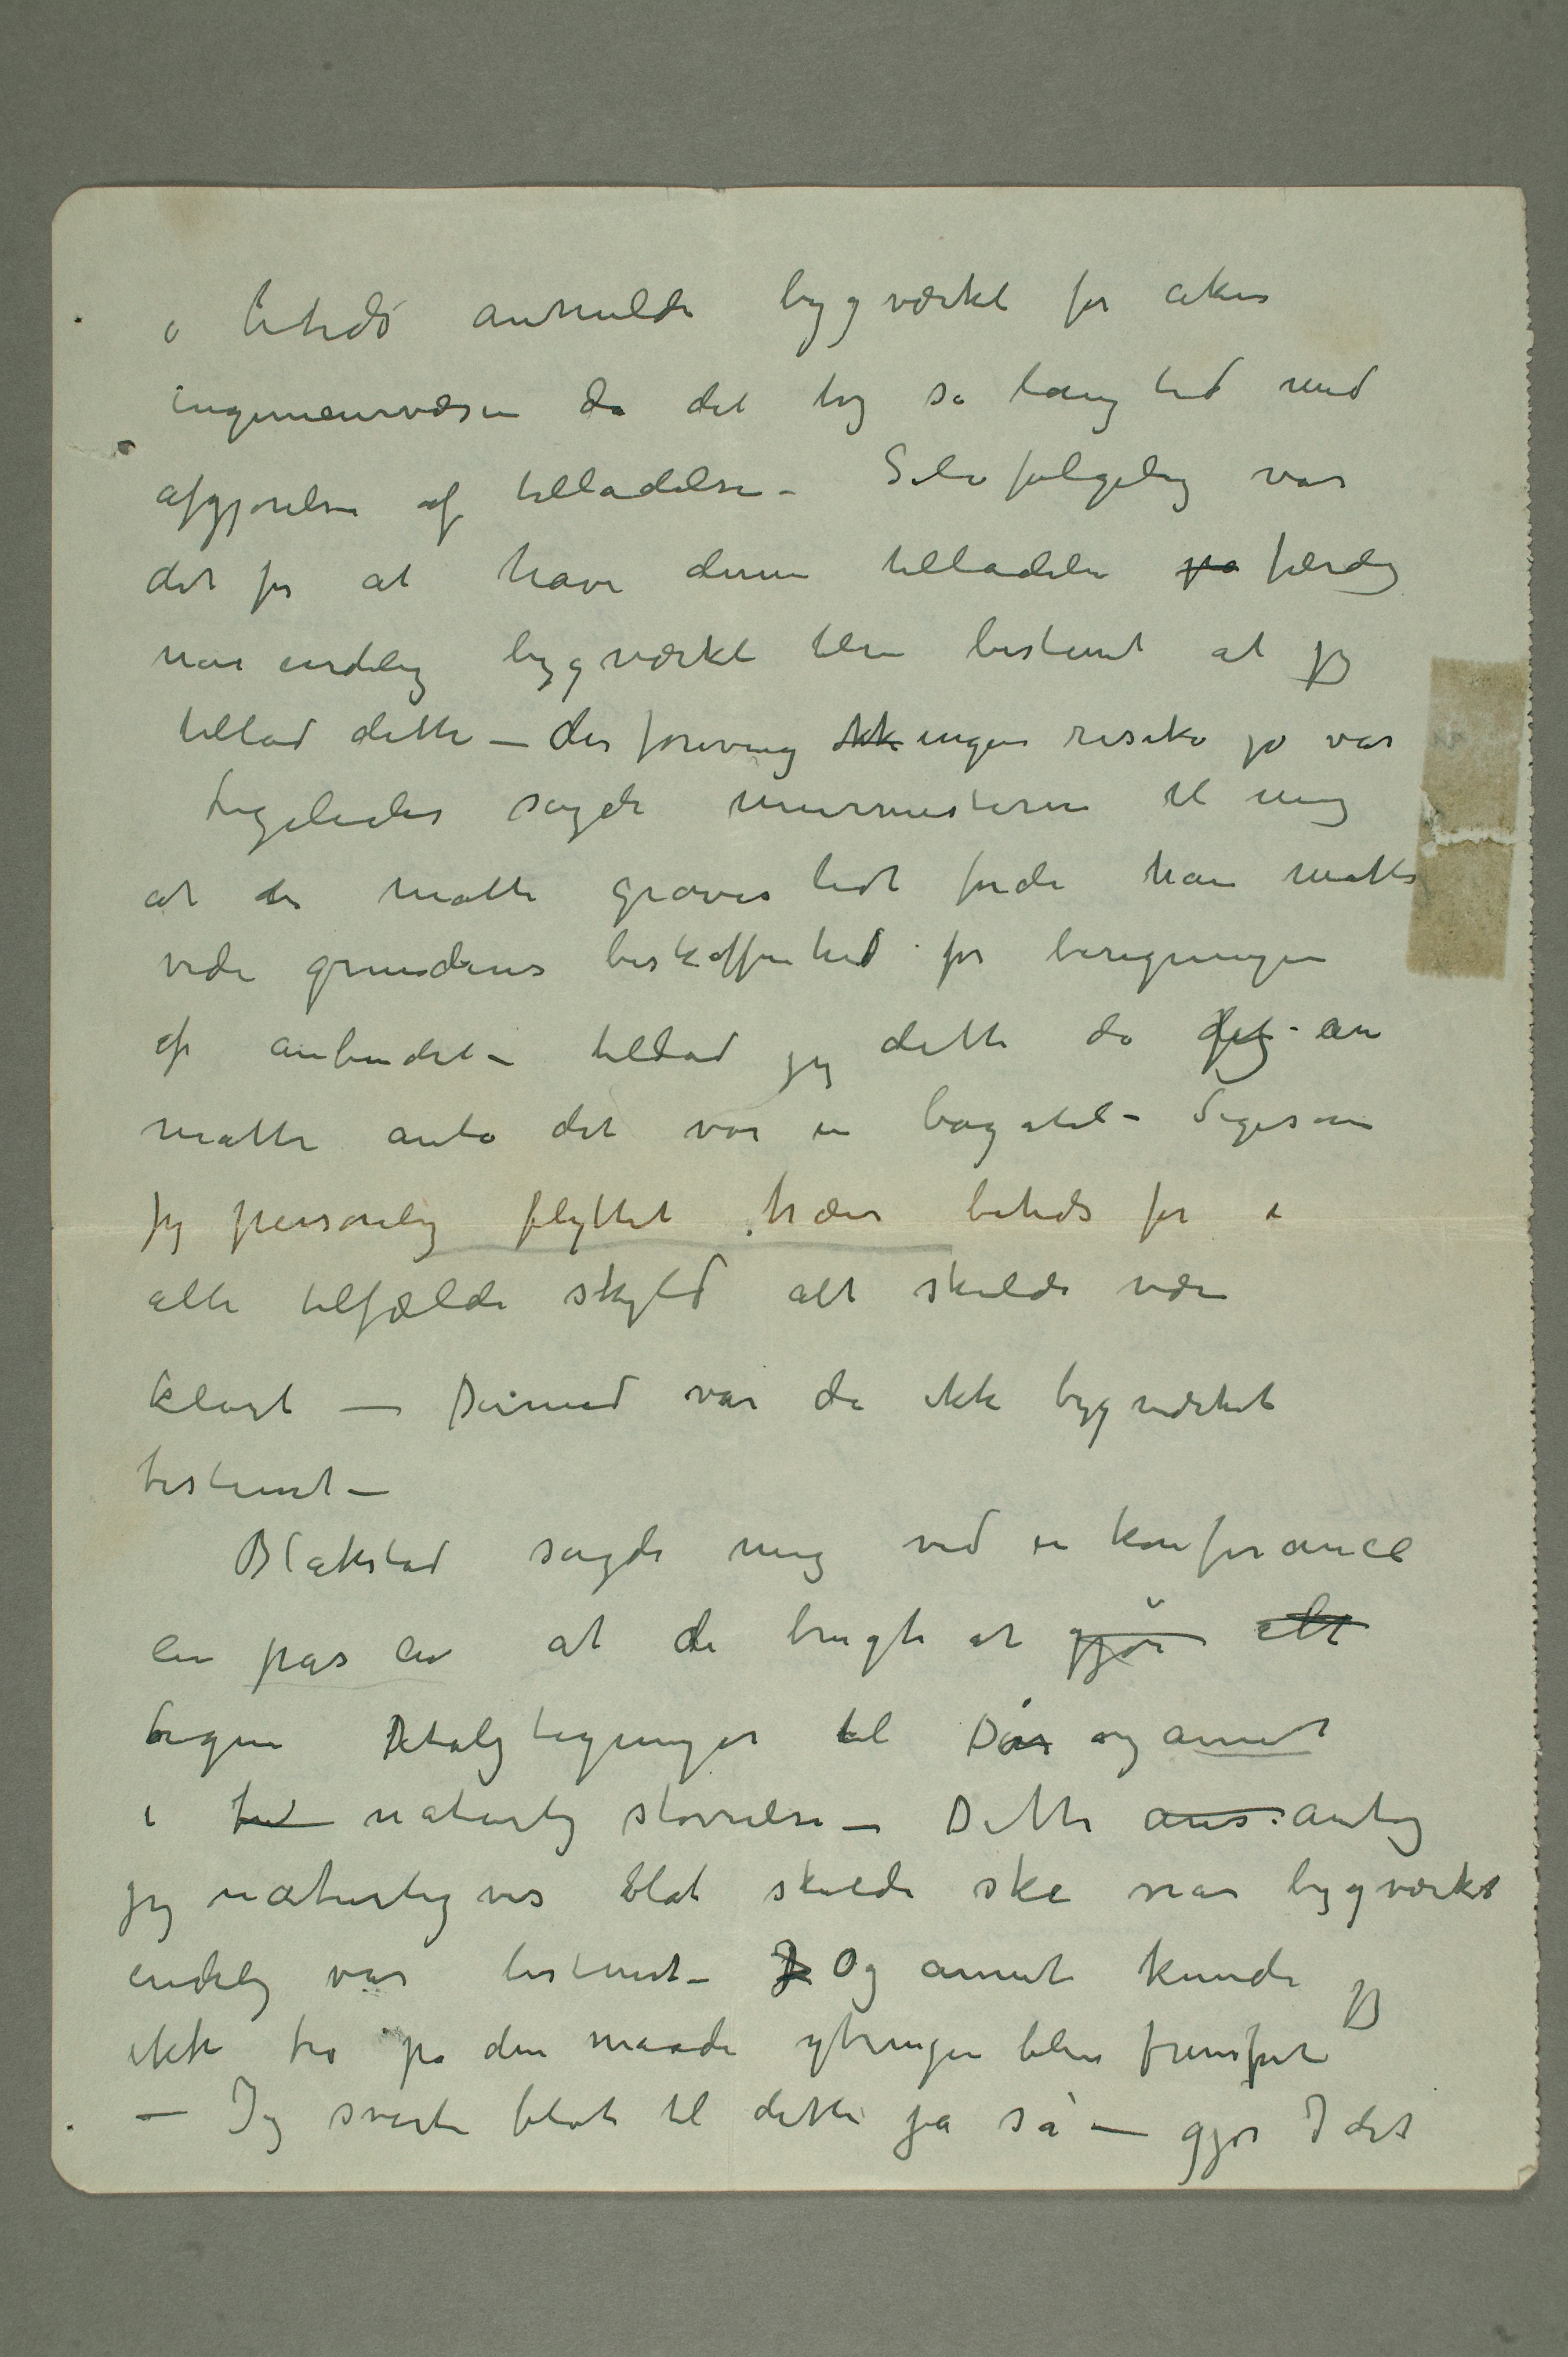 å betids anmelde bygværket for akers
ingeniørvæsen da det tog så lang tid med
afgjørelsen af tilladelsen – Selvfølgelig var
det for at have denne tilladelse på færdig
når endelig bygværket blev bestemt at jeg
tillod dette – der forøvrig ikk ingen risiko jo var
Ligeledes sagde murmesteren til mig
at der måtte graves lidt fordi han måtte
vide grundens beskaffenhed for beregningen
af anbudet – tillod jeg dette da jeg an
måtte anta det var en bagatel – Ligesom
jeg personlig flyttet træer betids for i
alle tilfældes skyld alt skulde være
klart — Dermed var da ikke bygværket
bestemt –
Blakstad sagde mig ved en konferance
en pas an at de brugte at gjøre alt
tegne Detaljtegninger til Dør og annet
i ful naturlig størrelse – Dette ans antog
jeg naturligvis blot skulde ske når bygværket
endelig var bestemt – J Og annet kunde jeg
ikke tro på den maade ytringen blev fremført
— Jeg svarte blot til dette ja så – gjør I det